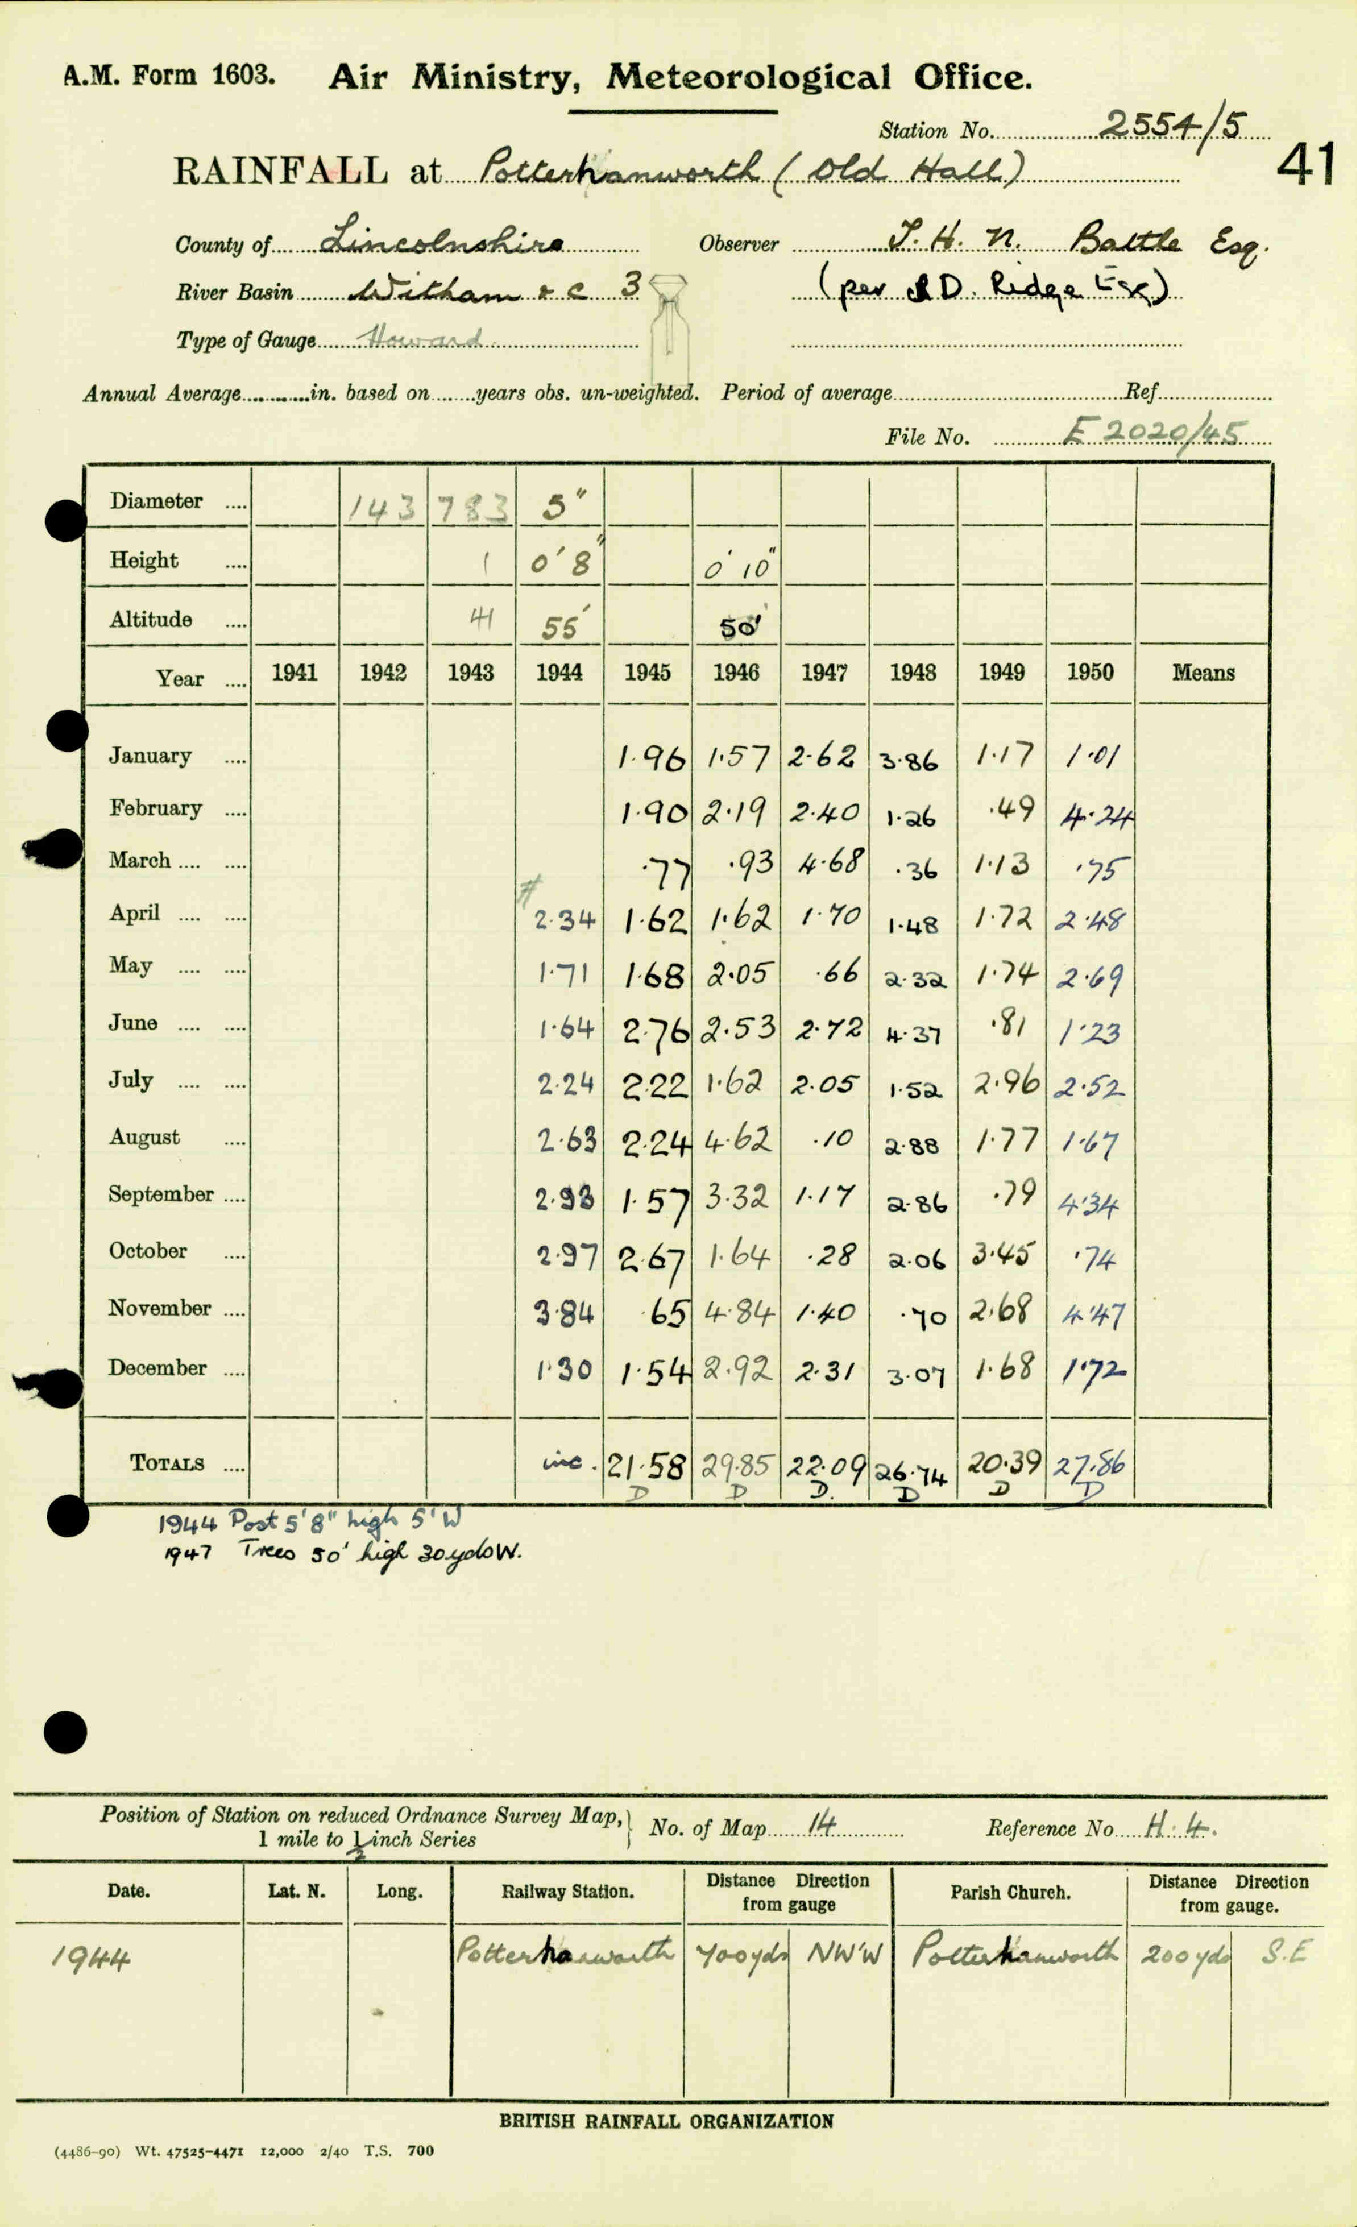 A.M. Form 1603. Air Ministry, Meteorological Office.
Station No. 2554/5
41
RAINFALL at Potterhanworth (Old Hall)
County of Lincolnshire Observer J. H. N. Battle Esq.
River Basin Witham & c 3 (per D. Ridge Esq)
Type of Gauge Howard.
Annual Average in. based on years obs. un-weighted. Period of average Ref.
File No. E 2020/45
Diameter .... 143 783 5"
Height .... 1 0' 8" 0' 10"
Altitude .... 41 55' 50'
Year .... 1941 1942 1943 1944 1945 1946 1947 1948 1949 1950 Means
January .... 1.96 1.57 2.62 3.86 1.17 1.01
February .... 1.90 2.19 2.40 1.26 .49 4.24
March .... .... .77 .93 4.68 .36 1.13 .75
April .... .... 2.34 1.62 1.62 1.70 1.48 1.72 2.48
May .... .... 1.71 1.68 2.05 .66 2.32 1.74 2.69
June .... .... 1.64 2.76 2.53 2.72 4.37 .81 1.23
July .... .... 2.24 2.22 1.62 2.05 1.52 2.96 2.52
August .... 2.63 2.24 4.62 .10 2.88 1.77 1.67
September .... 2.93 1.57 3.32 1.17 2.86 .79 4.34
October .... 2.97 2.67 1.64 .28 2.06 3.45 .74
November .... 3.84 .65 4.84 1.40 .70 2.68 4.47
December .... 1.30 1.54 2.92 2.31 3.07 1.68 1.72
TOTALS .... inc. 21.58 29.85 22.09 26.74 20.39 27.86
D D D. D D D
1944 Post 5'8" high 5' W
1947 Trees 50' high 30yds W.
Position of Station on reduced Ordnance Survey Map, } No. of Map 14 Reference No H. 4.
1 mile to ½ inch Series
Date. Lat. N. Long. Railway Station. Distance from gauge Direction Parish Church. Distance from gauge. Direction
1944 Potterhanworth 700yds NW'W Potterhanworth 200 yds S.E
BRITISH RAINFALL ORGANIZATION
(4486-90) Wt. 47525-4471 12,000 2/40 T.S. 700